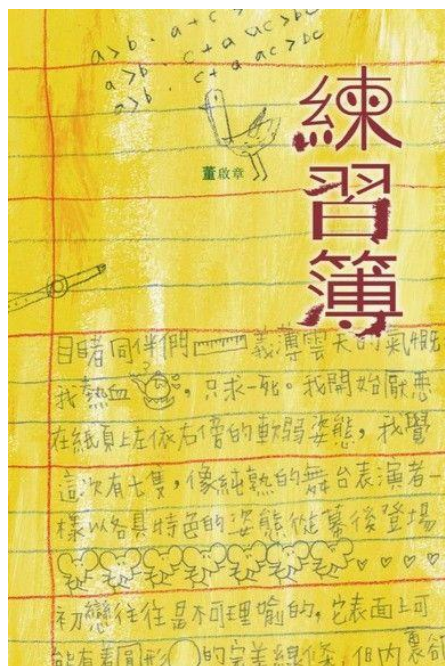 a>b.
a>b.
a>b.
c+a ac>bc
練習簿
董啟章
目睹同伴們 義薄雲天的氣慨
我熱血 , 只求一死。我開始厭惡
在紙頁上左依右傍的軟弱姿態, 我覺
這次有七隻, 像純熟的舞台表演者一
樣以各具特色的姿態從幕後登場
初戀往往是不可理喻的, 它表面上可
能有着圓形 的完美線條, 但內裏